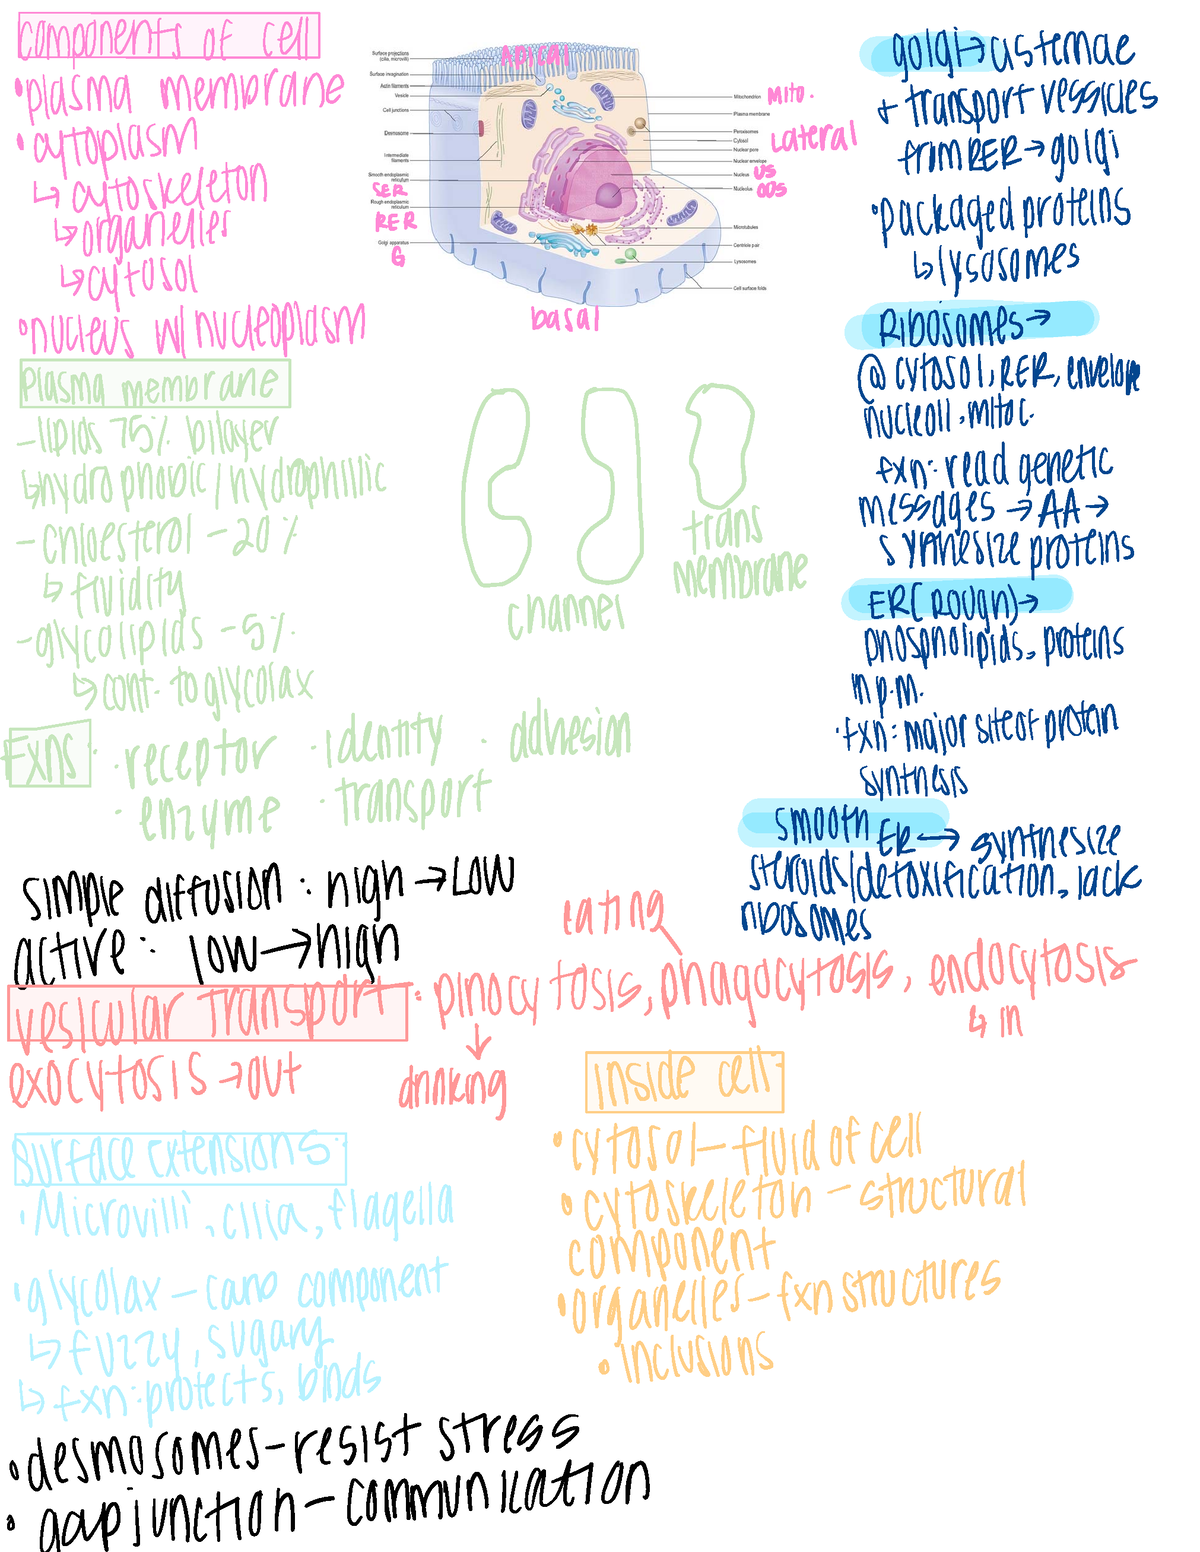 components of cell
•plasma membrane
•cytoplasm
↳cytoskeleton
↳organelles
↳cytosol
•nucleus w/nucleoplasm
Surface projections
(cilia, microvilli)
Surface invagination
Actin filaments
Vesicle
Cell junctions
Desmosome
Intermediate
filaments
Smooth endoplasmic
reticulum
SER
Rough endoplasmic
reticulum
RER
Golgi apparatus
G
Apical
Mitochondrion
Mito.
Plasma membrane
Peroxisomes
Cytosol
Lateral
Nuclear pore
Nuclear envelope
Nucleus
Nucleolus
Microtubules
Centriole pair
Lysosomes
Cell surface folds
basal
Plasma membrane
-lipids 75% bilayer
↳hydrophobic/hydrophillic
- chloesterol -20%
↳ fluidity
-glycolipids -5%
↳cont. to glycolax
channel
trans
membrane
Fxns
•receptor •identity •adhesion
•enzyme •transport
simple diffusion: high→Low
active: low→high
vesicular transport: pinocytosis, phagocytosis, endocytosis
eating
↳ in
exocytosis→out
drinking
Surface extensions:
•Microvilli, cilia, flagella
•glycolax - component
↳fuzzy, sugary
↳fxn:protects, binds
•desmosomes-resist stress
•gap junction-communication
inside cell:
•cytosol-fluid of cell
•cytoskeleton-structural
component
•organelles-fxn structures
•inclusions
golgi→cisternae
+ transport vessicles
from RER→golgi
•packaged proteins
↳lysosomes
Ribosomes→
@ cytosol, RER, envelope
nucleoli, mitoc.
fxn: read genetic
messages→AA→
synthesize proteins
ER(Rough)→
phospholipids, proteins
in p.m.
•fxn: major site of protein
synthesis
smooth ER→synthesize
steroids/detoxification, lack
ribosomes